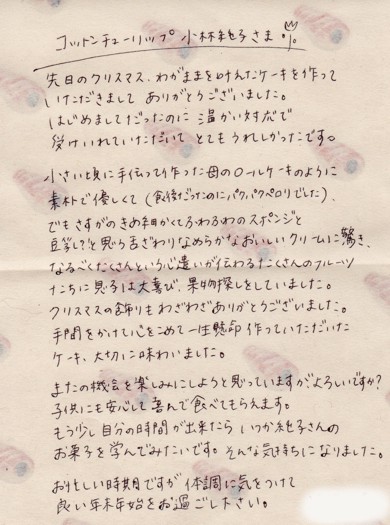 コットンチューリップ 小林純子さま
先日のクリスマス、わがままを叶えたケーキを作って
いただきまして ありがとうございました。
はじめましてだったのに 温かい対応で
受けいれていただいて とてもうれしかったです。
小さい頃に手伝って作った母のロールケーキのように
素朴で優しくて (食後だったのにパクパクペロリでした)、
でも さすがの きめ細かくてふわふわのスポンジと
豆乳?と思う舌ざわりなめらかなおいしいクリームに驚き、
なるべくたくさんという心遣いが伝わるたくさんのフルーツ
たちに息子は大喜び、果物探しをしていました。
クリスマスの飾りもわざわざありがとうございました。
手間をかけて心をこめて一生懸命 作っていただいた
ケーキ、大切に味わいました。
またの機会を楽しみにしようと思っていますが、よろしいですか?
子供にも安心して喜んで食べてもらえます。
もう少し自分の時間が出来たら いつか純子さんの
お菓子を学んでみたいです。そんな気持ちになりました。
お忙しい時期ですが 体調に気をつけて
良い年末年始をお過ごし下さい。